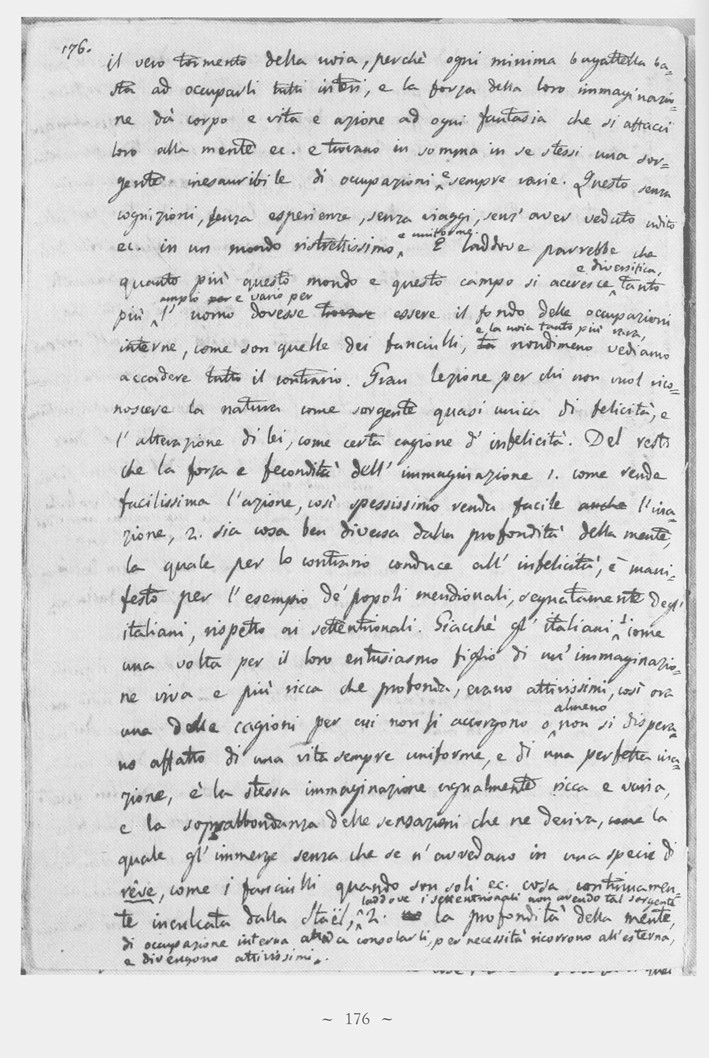 176.
il vero tormento della noia, perchè ogni minima bagattella ba-
sta ad occuparli tutti interi, e la forza della loro immaginazio-
ne dà corpo e vita e azione ad ogni fantasia che si affacci
loro alla mente ec. e trovano in somma in se stessi una sor-
gente inesauribile di occupazioni e sempre varie. Questo senza
cognizioni, senza esperienze, senza viaggi, senz' aver veduto udito
ec. in un mondo ristrettissimo e uniforme. E laddove parrebbe che
quanto più questo mondo e questo campo si accresce e diversifica, tanto
più amplo e vario per l' uomo dovesse essere il fondo delle occupazioni
interne, come son quelle dei fanciulli, e la noia tanto più rara, nondimeno vediamo
accadere tutto il contrario. Gran lezione per chi non vuol rico-
noscere la natura come sorgente quasi unica di felicità, e
l' alterazione di lei, come certa cagione d' infelicità. Del resto
che la forza e fecondità dell' immaginazione 1. come renda
facilissima l'azione, così spessissimo renda facile anche l'ina-
zione, 2. sia cosa ben diversa dalla profondità della mente,
la quale per lo contrario conduce all' infelicità, è mani-
festo per l'esempio de' popoli meridionali, segnatamente degl'
italiani, rispetto ai settentrionali. Giacchè gl' italiani 1. come
una volta per il loro entusiasmo figlio di un' immaginazio-
ne viva e più ricca che profonda, erano attivissimi, così ora
una delle cagioni per cui non si accorgono o almeno non si dispera-
no affatto di una vita sempre uniforme, e di una perfetta ina-
zione, è la stessa immaginazione ugualmente ricca e varia,
e la soprabbondanza delle sensazioni che ne deriva, la
quale gl' immerge senza che se n' avvedano in una specie di
rêve, come i fanciulli quando son soli ec. cosa continuamen-
te inculcata dalla Staël, laddove i settentrionali non avendo tal sorgente
di occupazione interna atta a consolarli, per necessità ricorrono all'esterna,
e divengono attivissimi.
2. la profondità della mente,
~ 176 ~